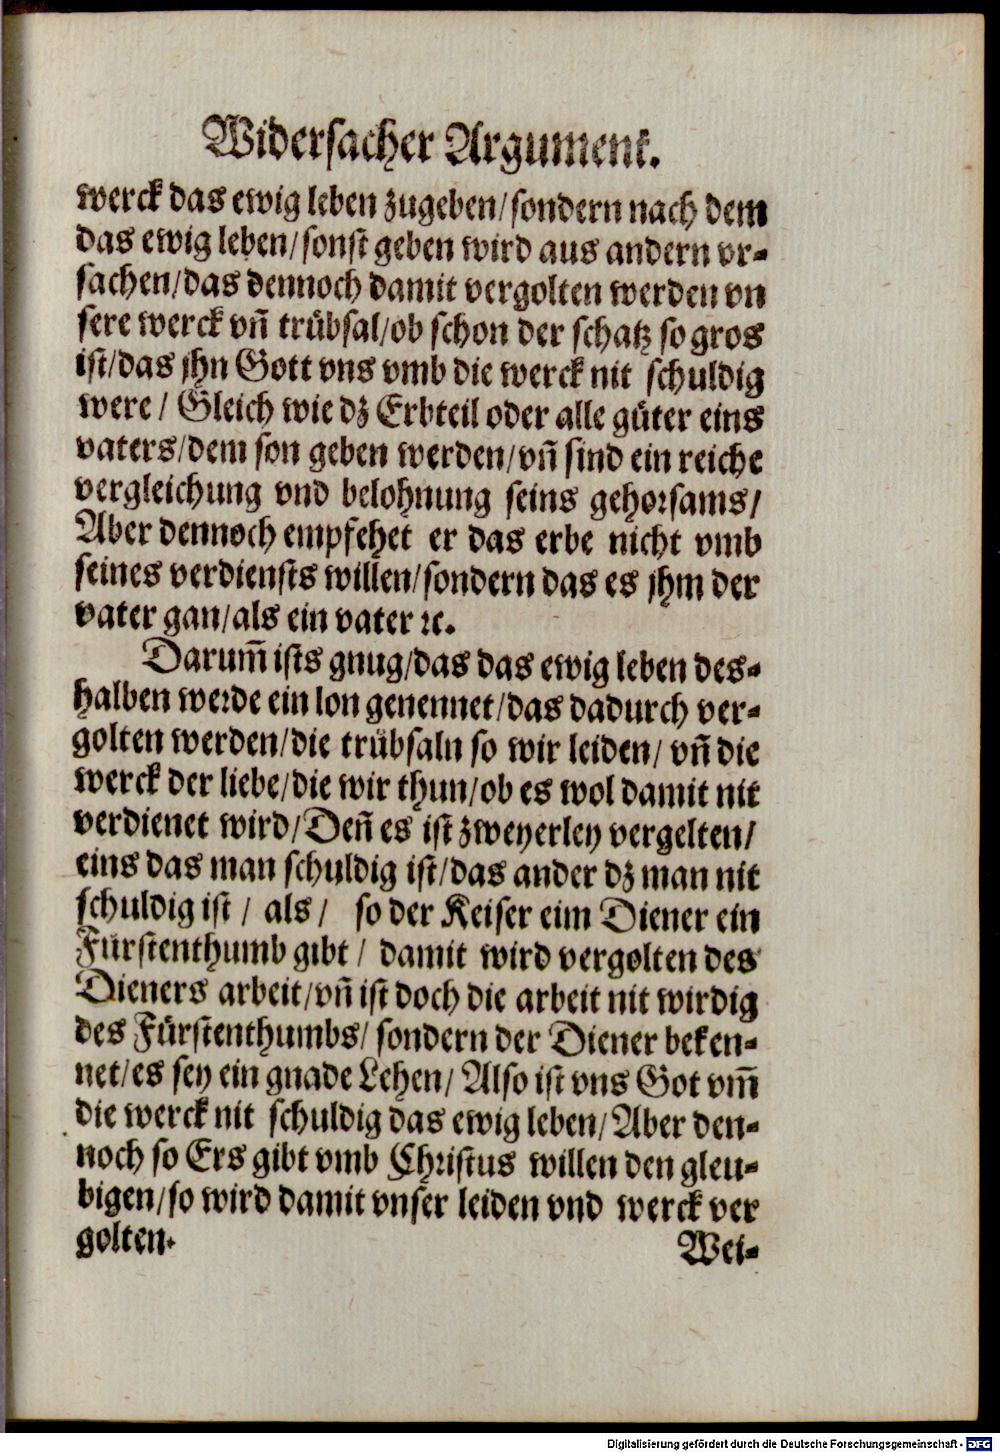 Widersacher Argument.
werck das ewig leben zugeben/sondern nach dem
das ewig leben/sonst geben wird aus andern vr-
sachen/das dennoch damit vergolten werden vn
sere werck vñ trübsal/ob schon der schatz so gros
ist/das jhn Gott vns vmb die werck nit schuldig
were/ Gleich wie dz Erbteil oder alle güter eins
vaters/dem son geben werden/vñ sind ein reiche
vergleichung vnd belohnung seins gehorsams/
Aber dennoch empfehet er das erbe nicht vmb
seines verdiensts willen/sondern das es jhm der
vater gan/als ein vater ꝛc.
Darum̃ ists gnug/das das ewig leben des-
halben werde ein lon genennet/das dadurch ver-
golten werden/die trübsaln so wir leiden/ vñ die
werck der liebe/die wir thun/ob es wol damit nit
verdienet wird/Deñ es ist zweyerley vergelten/
eins das man schuldig ist/das ander dz man nit
schuldig ist/ als/ so der Keiser eim Diener ein
Fürstenthumb gibt/ damit wird vergolten des
Dieners arbeit/vñ ist doch die arbeit nit wirdig
des Fürstenthumbs/ sondern der Diener beken-
net/es sey ein gnade Lehen/ Also ist vns Got vm̃
die werck nit schuldig das ewig leben/Aber den-
noch so Ers gibt vmb Christus willen den gleu-
bigen/so wird damit vnser leiden vnd werck ver
golten.
Wei-
Digitalisierung gefördert durch die Deutsche Forschungsgemeinschaft - DFG